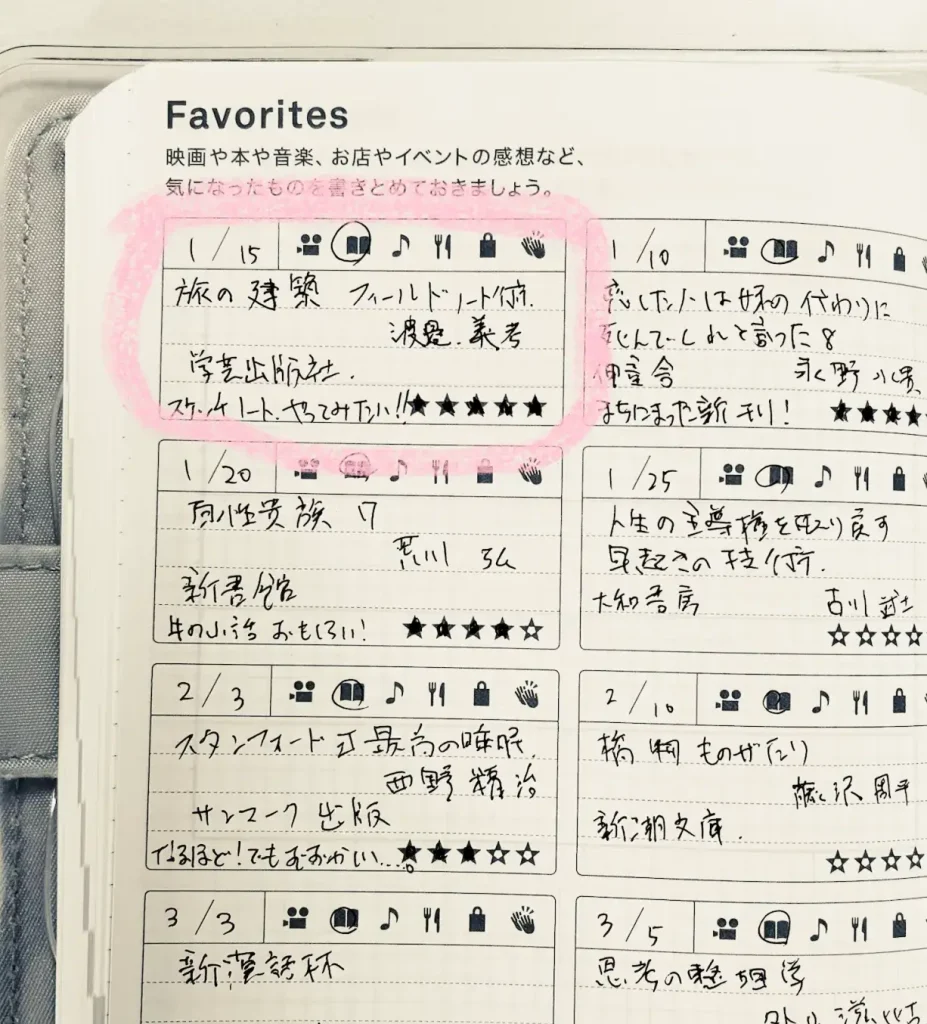 Favorites
映画や本や音楽、お店やイベントの感想など、
気になったものを書きとめておきましょう。
1/15
旅の建築 フィールドノート術.
波多 義孝
学芸出版社.
スケッチノート、やってみたい!!★★★★★
1/10
恋した人は妹の代わりに
死んでくれと言った 8
永野 水貴
まちにまった新刊! ★★★★
1/20
百姓貴族 7
荒川 弘
新書館
牛の小話 おもしろい! ★★★★☆
1/25
人生の主導権を取り戻す
早起きの技術.
大和書房 古川 武士
☆☆☆☆
2/3
スタンフォード式 最高の睡眠.
西野 精治
サンマーク出版
なるほど!でもむずかしい... ★★★☆☆
2/10
橋ものがたり
藤沢 周平
新潮文庫.
☆☆☆☆
3/3
新薬話
3/5
思考の整理学
外山 滋比古